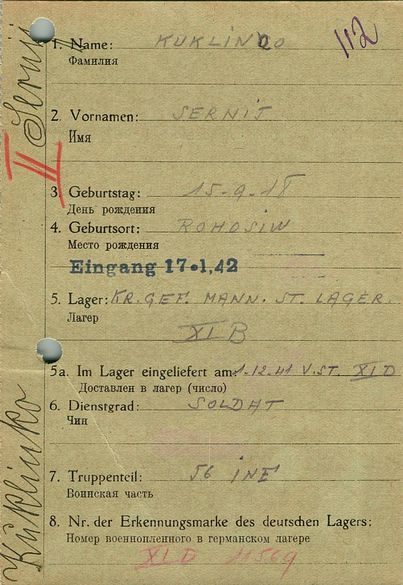 112
1. Name: KUKLINKO
Фамилия
2. Vornamen: SERNIJ
Имя
3. Geburtstag: 15-9-18
День рождения
4. Geburtsort: ROHOSIW
Место рождения
Eingang 17.1.42
5. Lager: KR. GEF. MANN. ST. LAGER.
Лагер
XI B
5a. Im Lager eingeliefert am: 1.12.41 V. ST. XI D
Доставлен в лагер (число)
6. Dienstgrad: SOLDAT
Чин
7. Truppenteil: 56 INF
Воинская часть
8. Nr. der Erkennungsmarke des deutschen Lagers:
Номер военнопленного в германском лагере
XI D 11569
Kuklinko
II